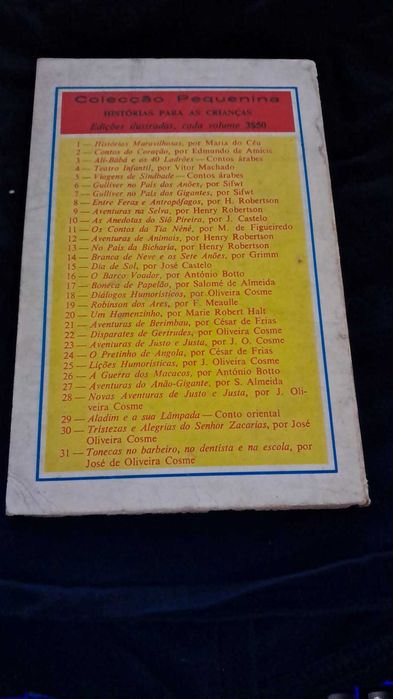 Colecção Pequenina
HISTÓRIAS PARA AS CRIANÇAS
Edições ilustradas, cada volume 3$50
1 — Histórias Maravilhosas, por Maria do Céu
2 — Contos do Coração, por Edmundo de Amicis
3 — Ali-Bábá e os 40 Ladrões — Contos árabes
4 — Teatro Infantil, por Vítor Machado
5 — Viagens de Sindbade — Contos árabes
6 — Gulliver no País dos Anões, por Sifwt
7 — Gulliver no País dos Gigantes, por Sifwt
8 — Entre Feras e Antropófagos, por H. Robertson
9 — Aventuras na Selva, por Henry Robertson
10 — As Anedotas do Siô Pireira, por J. Castelo
11 — Os Contos da Tia Néné, por M. de Figueiredo
12 — Aventuras de Animais, por Henry Robertson
13 — No País da Bicharia, por Henry Robertson
14 — Branca de Neve e os Sete Anões, por Grimm
15 — Dia de Sol, por José Castelo
16 — O Barco Voador, por António Botto
17 — Boneca de Papelão, por Salomé de Almeida
18 — Diálogos Humorísticos, por Oliveira Cosme
19 — Robinson dos Ares, por F. Meaulle
20 — Um Homenzinho, por Marie Robert Halt
21 — Aventuras de Berimbau, por César de Frias
22 — Disparates de Gertrudes, por Oliveira Cosme
23 — Aventuras de Justo e Justa, por J. O. Cosme
24 — O Pretinho de Angola, por César de Frias
25 — Lições Humorísticas, por J. Oliveira Cosme
26 — A Guerra dos Macacos, por António Botto
27 — Aventuras do Anão-Gigante, por S. Almeida
28 — Novas Aventuras de Justo e Justa, por J. Oli-
veira Cosme
29 — Aladim e a sua Lâmpada — Conto oriental
30 — Tristezas e Alegrias do Senhor Zacarias, por José
Oliveira Cosme
31 — Tonecas no barbeiro, no dentista e na escola, por
José de Oliveira Cosme